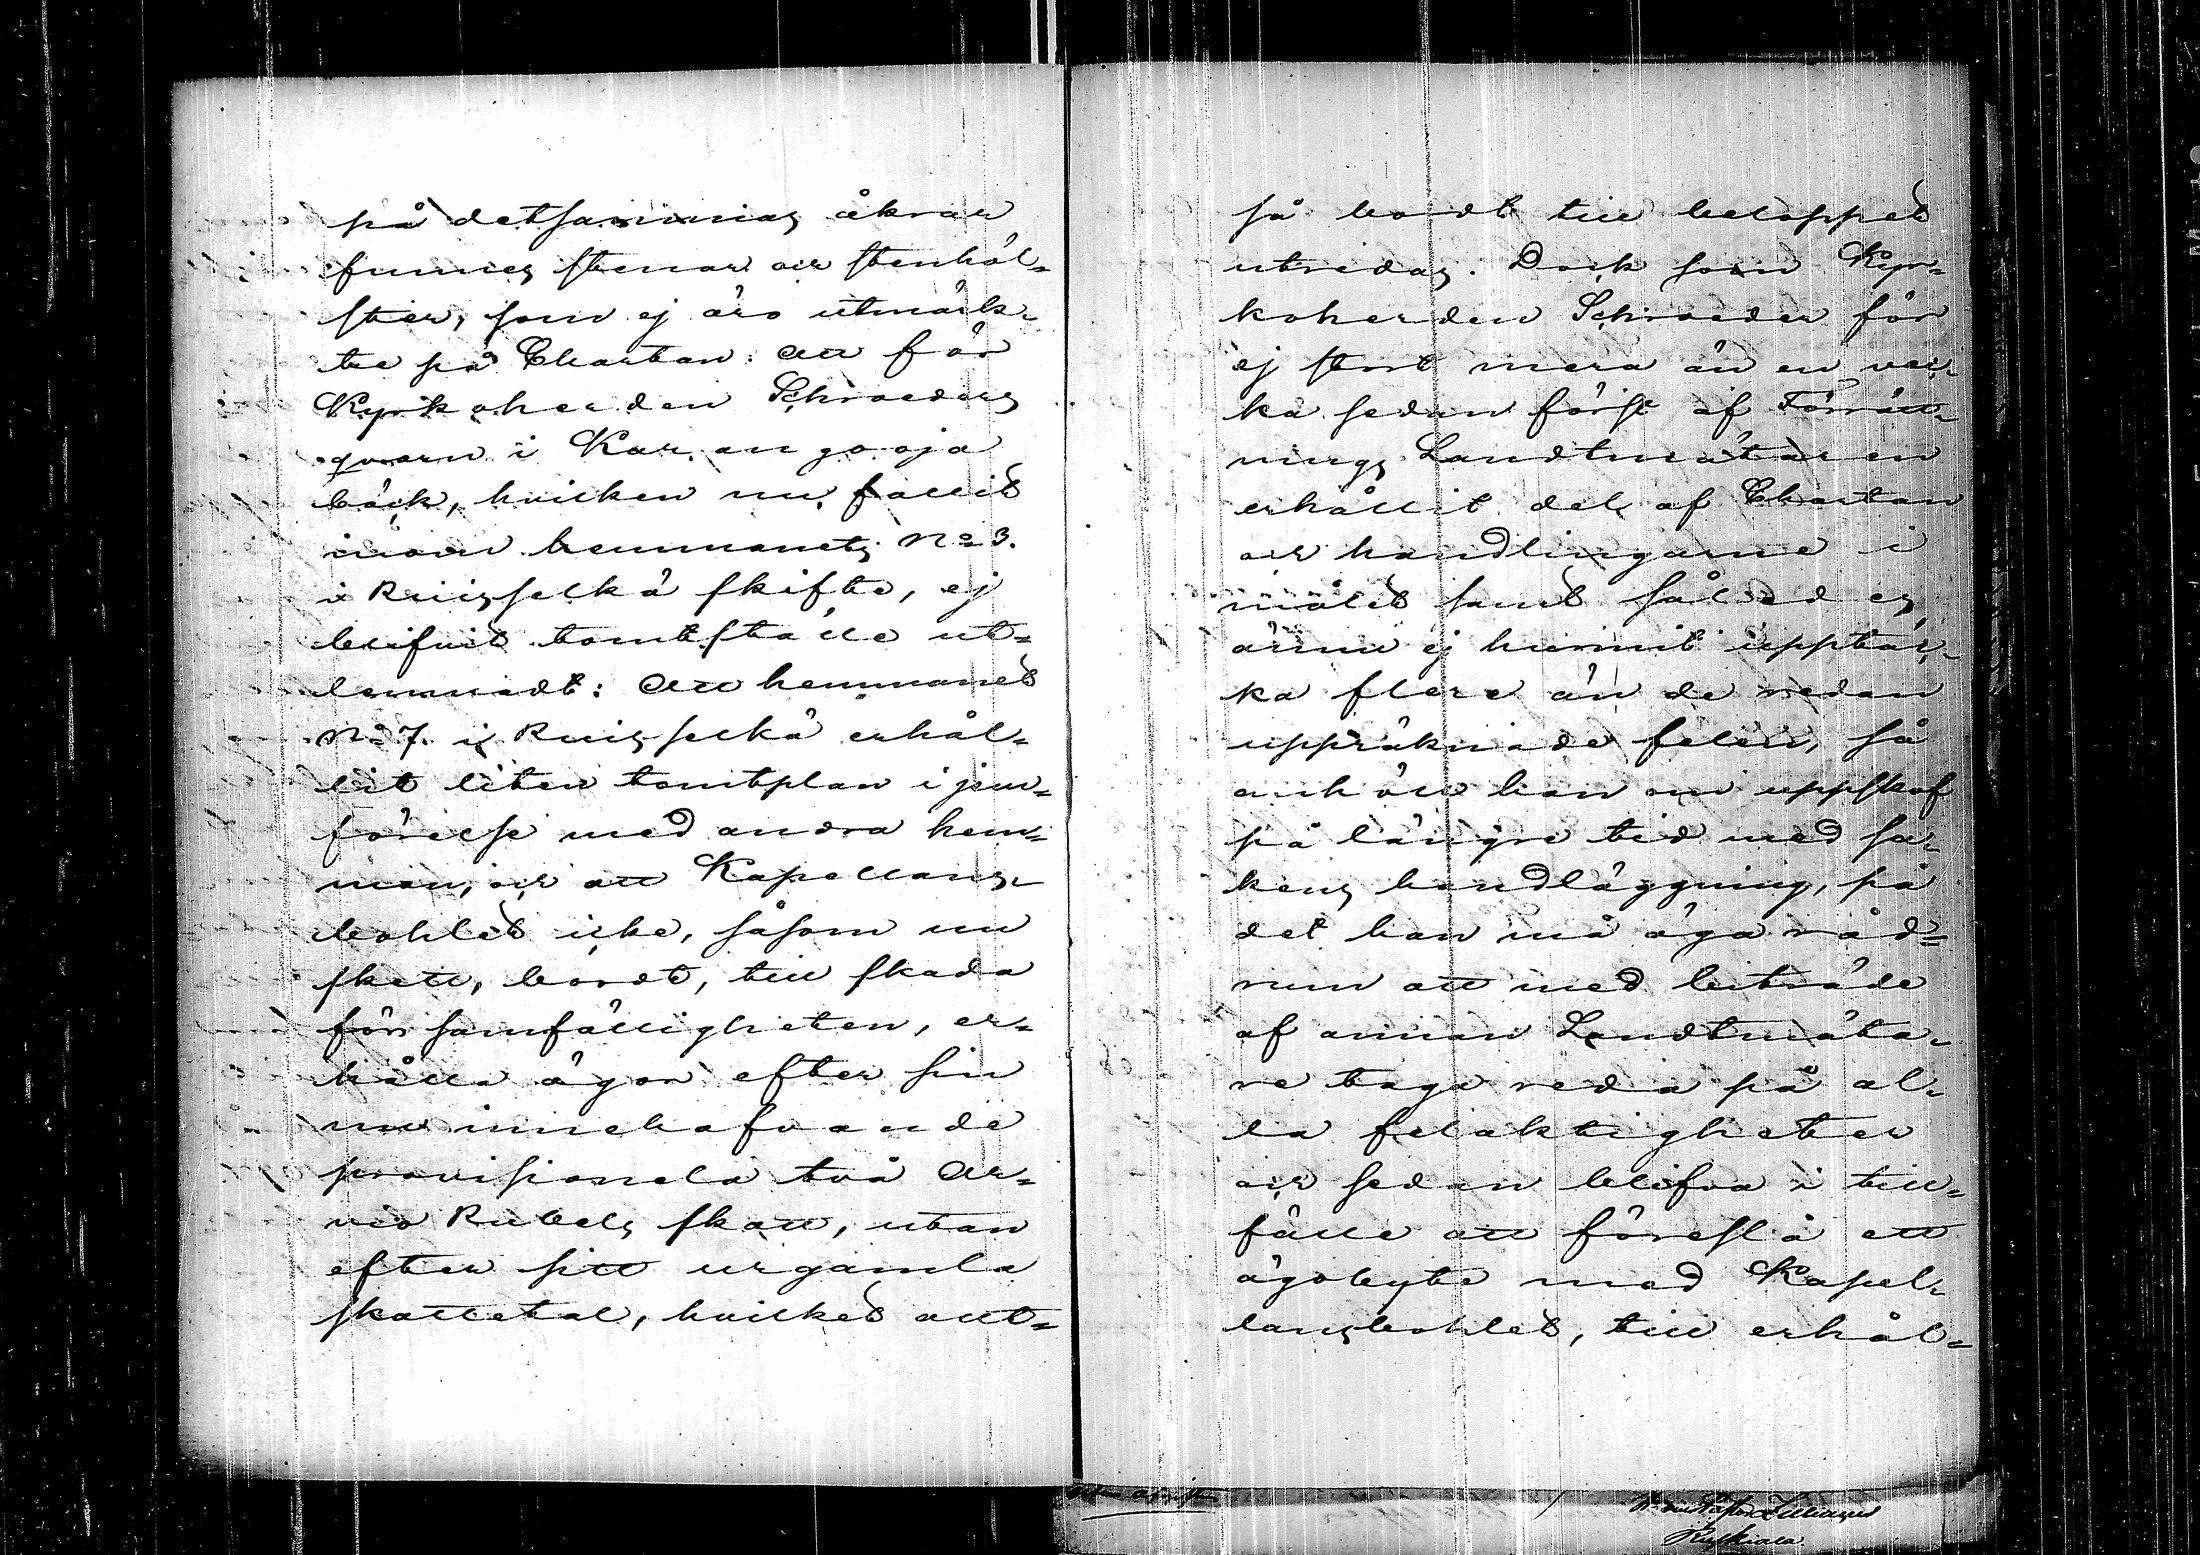 på detsammas åkrar
finnes stenar och stenhöl-
ster, som ej äro utmärk-
te på Chartan: att för
Kyrkoherden Schroeders
qvarn i Kar.angonoja
bäck, hvilken nu fallit
inom hemmanets No 3.
i Ruisselkä skifte, ej
blifvit tomtställe ut-
lemnadt: att hemmanet
No 7. i Ruisselkä erhål-
lit liten tomtplan i jem-
förelse med andra hem-
man, och att Kapellans-
bohlet icke, såsom nu
skett, bordt, till skada
för samfälligheten, er-
hålla ägor efter sin
nu innehafvande
provisionela två Ar-
vio Rubels skatt, utan
efter sitt urgamla
skattetal, hvilket allt-
så bordt till beloppet
utredas. Dock som Kyr-
koherden Schroeder för
ej stort mera än en vec-
ka sedan först af Förrätt-
nings Landtmätaren
erhållit del af Chartan
och handlingarne i
målet samt således
ännu ej hunnit upptäc-
ka flere än de redan
uppräknade felen, så
anhöll han om uppskof
på längre tid med sa-
kens handläggning, på
det han må äga råd-
rum att med biträde
af annan Landtmäta-
re taga reda på al-
la felaktigheter
och sedan blifva i till-
fälle att föreslå ett
ägobyte med Kapel-
lansbohlet, till erhål-
Ruskiala